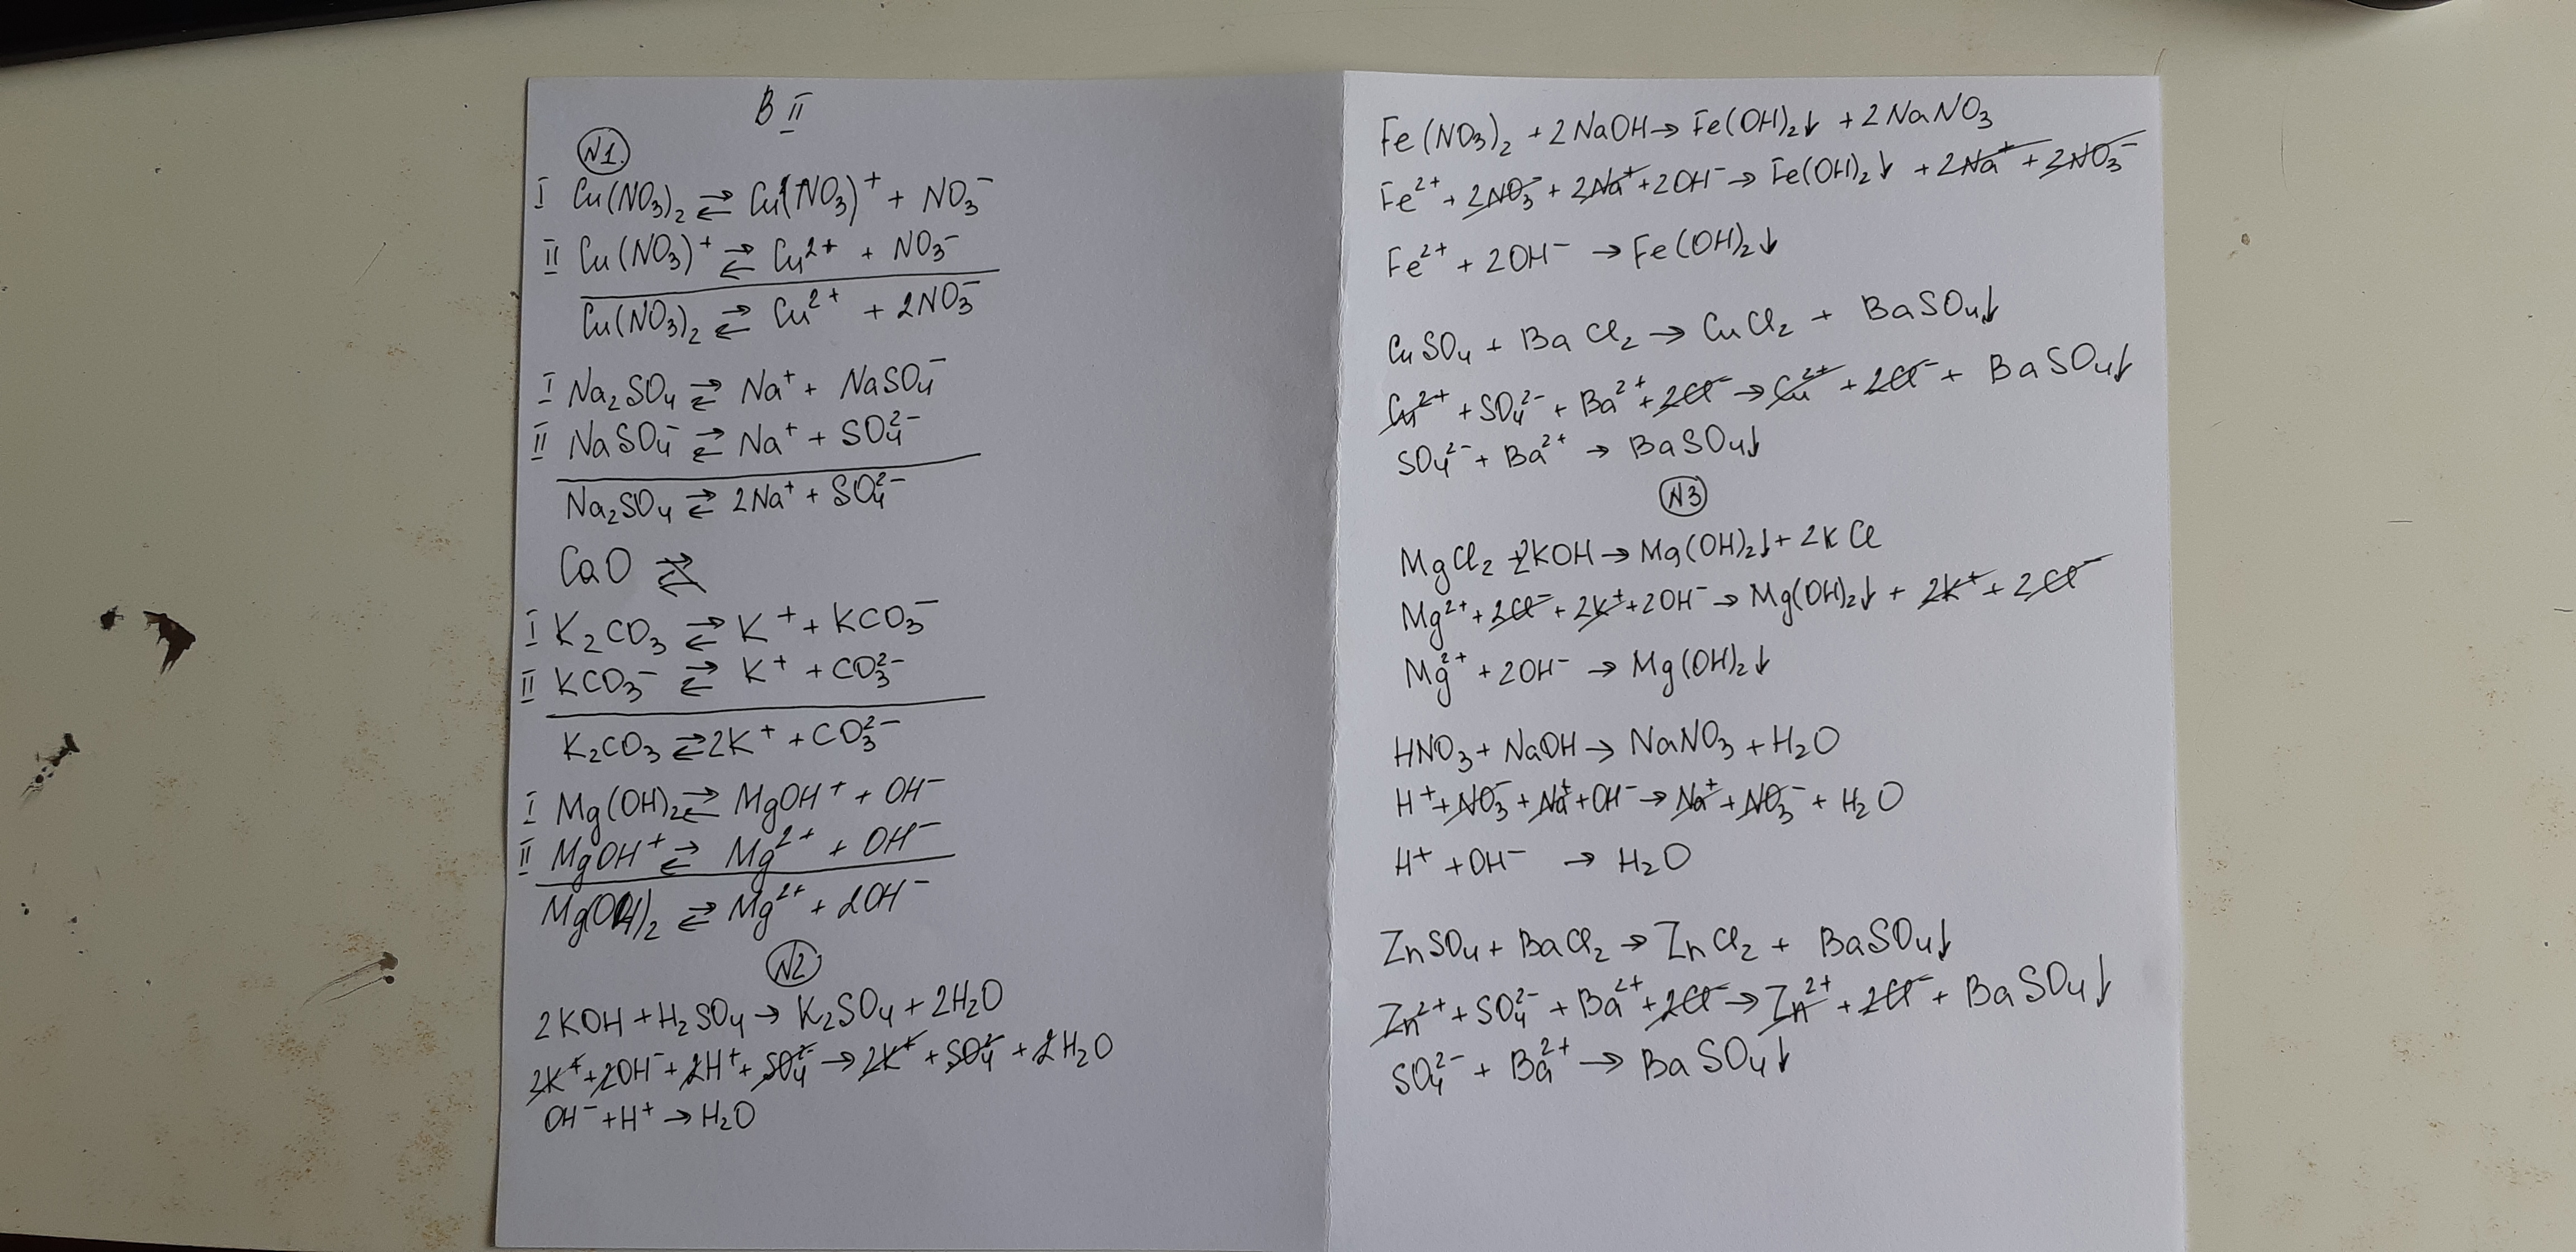 B II
N1.
I Cu(NO₃)₂ ⇄ Cu(NO₃)⁺ + NO₃⁻
II Cu(NO₃)⁺ ⇄ Cu²⁺ + NO₃⁻
Cu(NO₃)₂ ⇄ Cu²⁺ + 2NO₃⁻
I Na₂SO₄ ⇄ Na⁺ + NaSO₄⁻
II NaSO₄⁻ ⇄ Na⁺ + SO₄²⁻
Na₂SO₄ ⇄ 2Na⁺ + SO₄²⁻
CaO ⇄
I K₂CO₃ ⇄ K⁺ + KCO₃⁻
II KCO₃⁻ ⇄ K⁺ + CO₃²⁻
K₂CO₃ ⇄ 2K⁺ + CO₃²⁻
I Mg(OH)₂ ⇄ MgOH⁺ + OH⁻
II MgOH⁺ ⇄ Mg²⁺ + OH⁻
Mg(OH)₂ ⇄ Mg²⁺ + 2OH⁻
N2
2KOH + H₂SO₄ → K₂SO₄ + 2H₂O
2K⁺ + 2OH⁻ + 2H⁺ + SO₄²⁻ → 2K⁺ + SO₄²⁻ + 2H₂O
OH⁻ + H⁺ → H₂O
Fe(NO₃)₂ + 2NaOH → Fe(OH)₂↓ + 2NaNO₃
Fe²⁺ + 2NO₃⁻ + 2Na⁺ + 2OH⁻ → Fe(OH)₂↓ + 2Na⁺ + 2NO₃⁻
Fe²⁺ + 2OH⁻ → Fe(OH)₂↓
CuSO₄ + BaCl₂ → CuCl₂ + BaSO₄↓
Cu²⁺ + SO₄²⁻ + Ba²⁺ + 2Cl⁻ → Cu²⁺ + 2Cl⁻ + BaSO₄↓
SO₄²⁻ + Ba²⁺ → BaSO₄↓
N3
MgCl₂ + 2KOH → Mg(OH)₂↓ + 2KCl
Mg²⁺ + 2Cl⁻ + 2K⁺ + 2OH⁻ → Mg(OH)₂↓ + 2K⁺ + 2Cl⁻
Mg²⁺ + 2OH⁻ → Mg(OH)₂↓
HNO₃ + NaOH → NaNO₃ + H₂O
H⁺ + NO₃⁻ + Na⁺ + OH⁻ → Na⁺ + NO₃⁻ + H₂O
H⁺ + OH⁻ → H₂O
ZnSO₄ + BaCl₂ → ZnCl₂ + BaSO₄↓
Zn²⁺ + SO₄²⁻ + Ba²⁺ + 2Cl⁻ → Zn²⁺ + 2Cl⁻ + BaSO₄↓
SO₄²⁻ + Ba²⁺ → BaSO₄↓